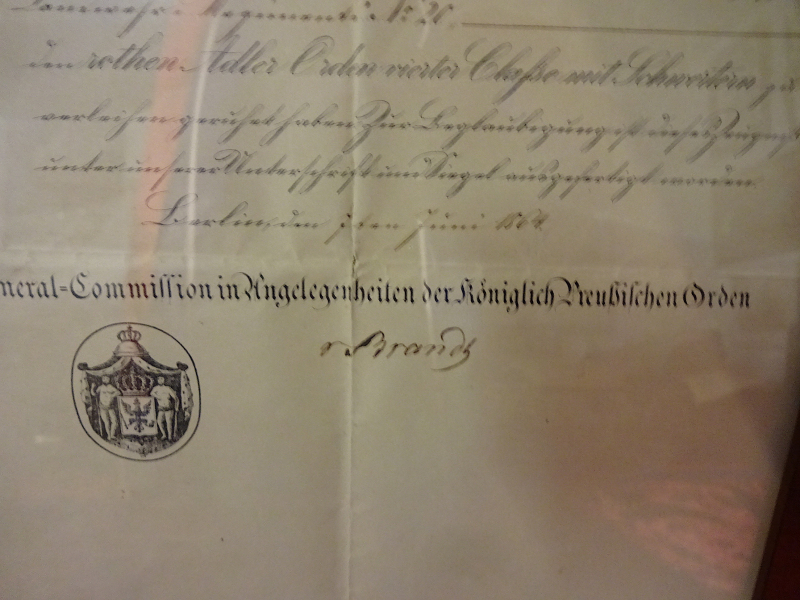 Landwehr-Regiments No 20.
den rothen Adler Orden vierter Claße mit Schwertern zu
verleihen geruhet haben. Zur Beglaubigung ist dieses Zeugniß
unter unserer Unterschrift und Siegel ausgefertigt worden.
Berlin, den 7ten Juni 1864.
neral=Commission in Angelegenheiten der Königlich Preußischen Orden
v. Brandt